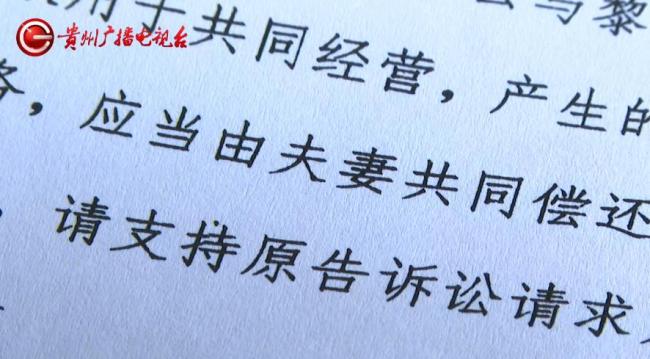 贵州广播电视台
用于共同经营，产生的
，应当由夫妻共同偿还
，请支持原告诉讼请求